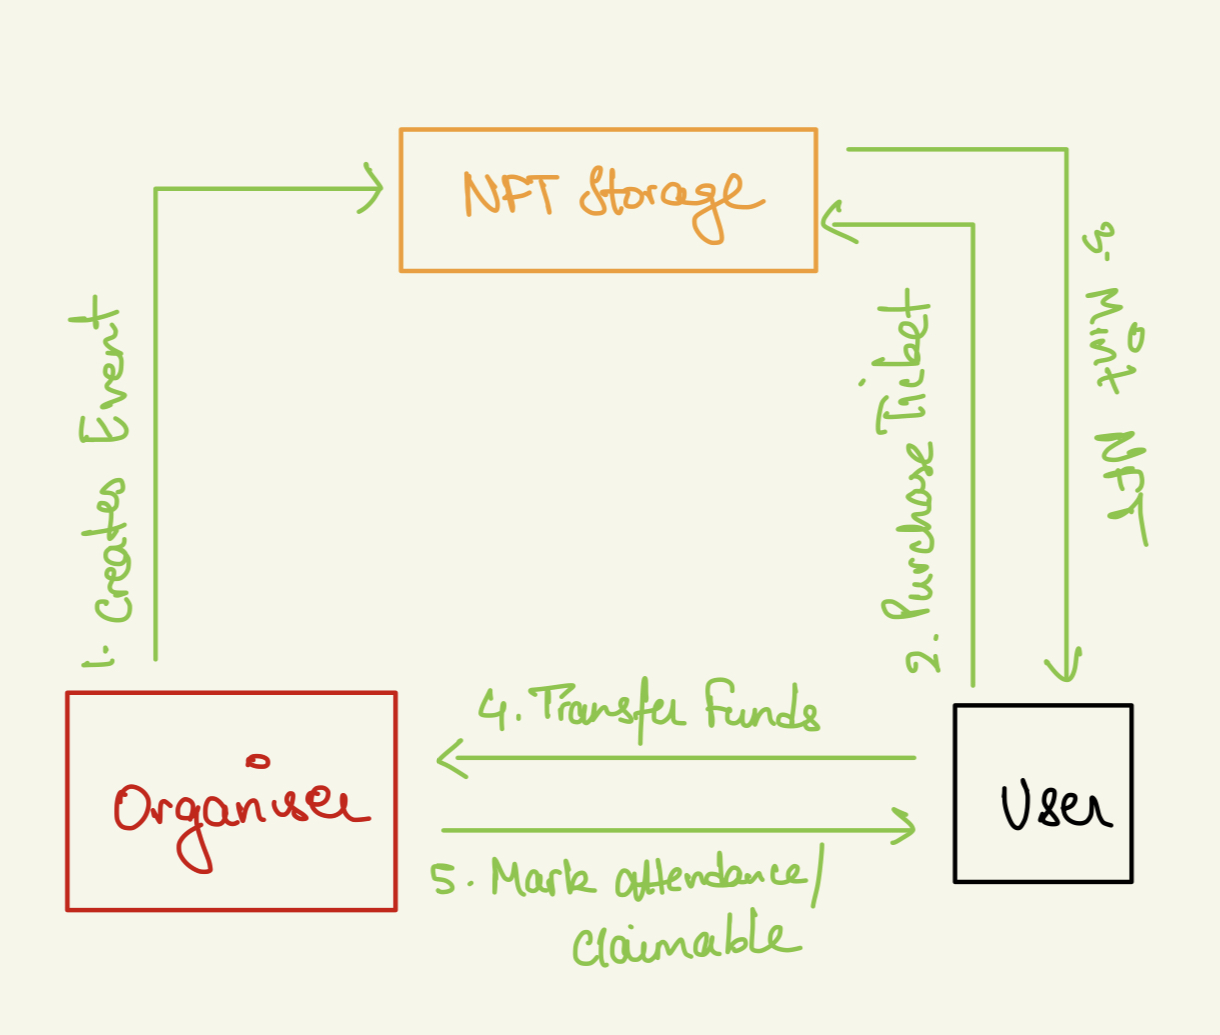 NFT Storage
1. Creates Event
2. Purchase Ticket
3. Mint NFT
4. Transfer Funds
Organiser
User
5. Mark attendance/
claimable